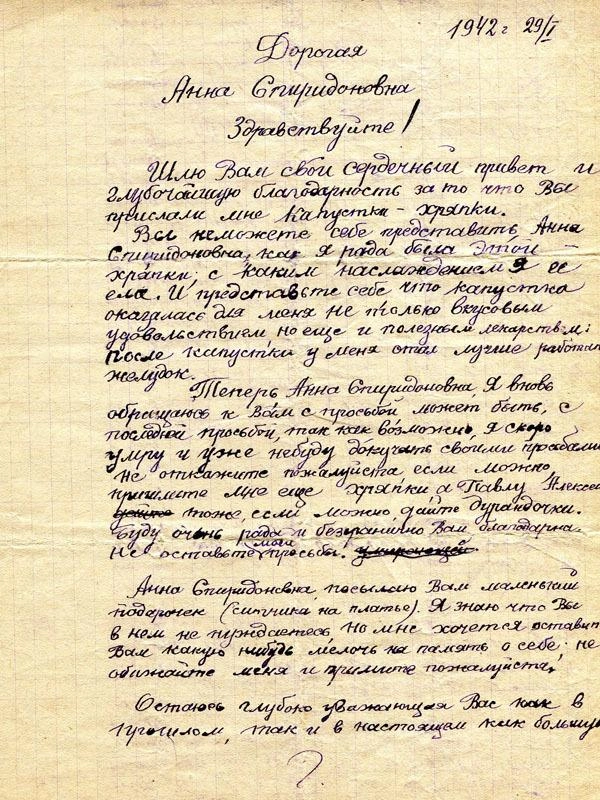 1942 г 29/I
Дорогая
Анна Спиридоновна
Здравствуйте!
Шлю Вам свой сердечный привет и
глубочайшую благодарность за то что Вы
прислали мне капустки – хряпки.
Вы неможете себе представить Анна
Спиридоновна, как я рада была этой –
хряпки; с каким наслаждением я ее
ела. И представьте себе что капустка
оказалась для меня не только вкусовым
удовольствием но еще и полезным лекарством:
после капустки у меня стал лучше работат
желудок.
Теперь Анна Спиридоновна, Я вновь
обращаюсь к Вам с просьбой может быть, с
последней просьбой, так как возможно, я скоро
умру и уже небуду докучать своими просьбами
не откажите пожалуйста если можно,
пришлите мне еще хряпки а Павлу Алексе
тоже, если можно дайте дурандочки.
Буду очень рада и безгранично Вам благодарна.
Не оставьте мои просьбы.
Анна Спиридоновна, посылаю Вам маленький
подарочек (ситчика на платье). Я знаю что Вы
в нем не нуждаетесь, но мне хочется оставит
Вам какую нибудь мелочь на память о себе; не
обижайте меня и примите пожалуйста,
Остаюсь глубоко уважающая Вас как в
прошлом, так и в настоящем как большую